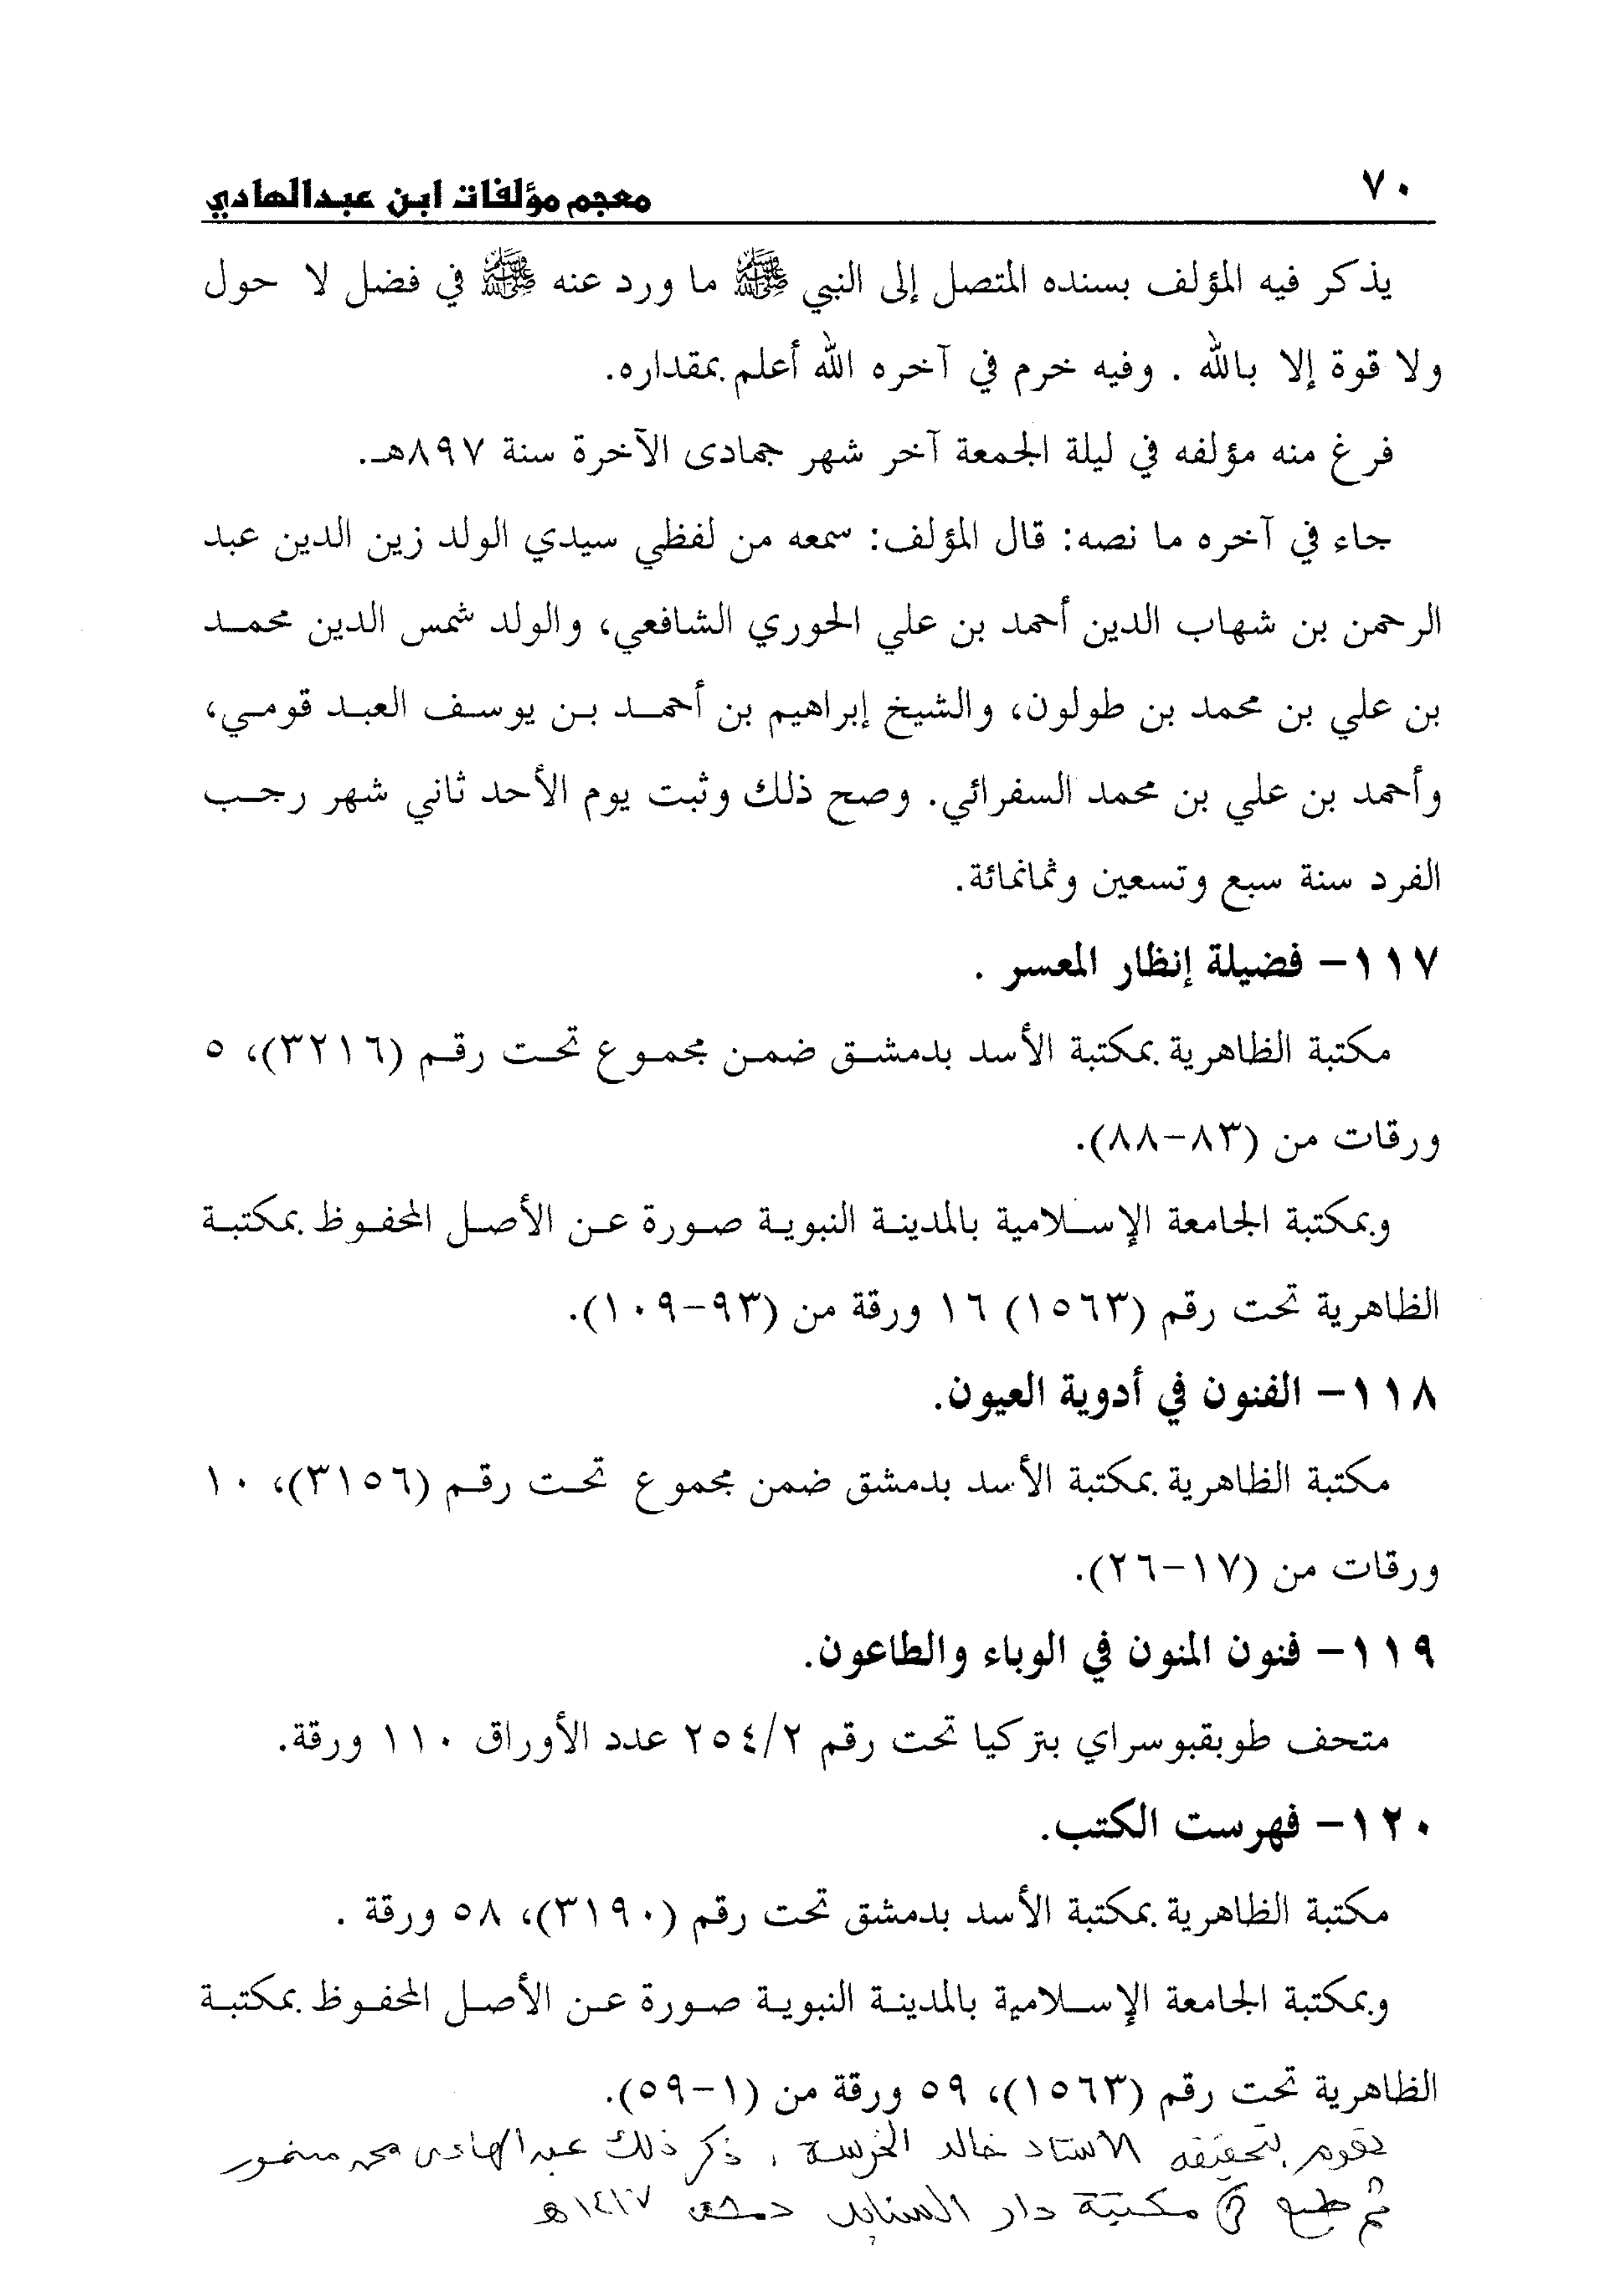 ٧٠ معجم مؤلفات ابن عبدالهادي
يذكر فيه المؤلف بسنده المتصل إلى النبي ﷺ ما ورد عنه ﷺ في فضل لا حول
ولا قوة إلا بالله . وفيه خرم في آخره الله أعلم بمقداره.
فرغ منه مؤلفه في ليلة الجمعة آخر شهر جمادى الآخرة سنة ٨٩٧هـ.
جاء في آخره ما نصه: قال المؤلف: سمعه من لفظي سيدي الولد زين الدين عبد
الرحمن بن شهاب الدين أحمد بن علي الحوري الشافعي، والولد شمس الدين محمد
بن علي بن محمد بن طولون، والشيخ إبراهيم بن أحمد بن يوسف العبد قومي،
وأحمد بن علي بن محمد السفرائي. وصح ذلك وثبت يوم الأحد ثاني شهر رجب
الفرد سنة سبع وتسعين وثمانمائة.
١١٧- فضيلة إنظار المعسر .
مكتبة الظاهرية بمكتبة الأسد بدمشق ضمن مجموع تحت رقم (٣٢١٦)، ٥
ورقات من (٨٣-٨٨).
وبمكتبة الجامعة الإسلامية بالمدينة النبوية صورة عن الأصل المحفوظ بمكتبة
الظاهرية تحت رقم (١٥٦٣) ١٦ ورقة من (٩٣-١٠٩).
١١٨- الفنون في أدوية العيون.
مكتبة الظاهرية بمكتبة الأسد بدمشق ضمن مجموع تحت رقم (٣١٥٦)، ١٠
ورقات من (١٧-٢٦).
١١٩- فنون المنون في الوباء والطاعون.
متحف طوبقبوسراي بتركيا تحت رقم ٢٥٤/٢ عدد الأوراق ١١٠ ورقة.
١٢٠- فهرست الكتب.
مكتبة الظاهرية بمكتبة الأسد بدمشق تحت رقم (٣١٩٠)، ٥٨ ورقة .
وبمكتبة الجامعة الإسلامية بالمدينة النبوية صورة عن الأصل المحفوظ بمكتبة
الظاهرية تحت رقم (١٥٦٣)، ٥٩ ورقة من (١-٥٩).
يقوم بتحقيقه الاستاد خالد الخرسة ، ذكر ذلك عبدالهادى محمد منصور
ثم طبع في مكتبة دار السنابل دمشق ١٤١٧هـ